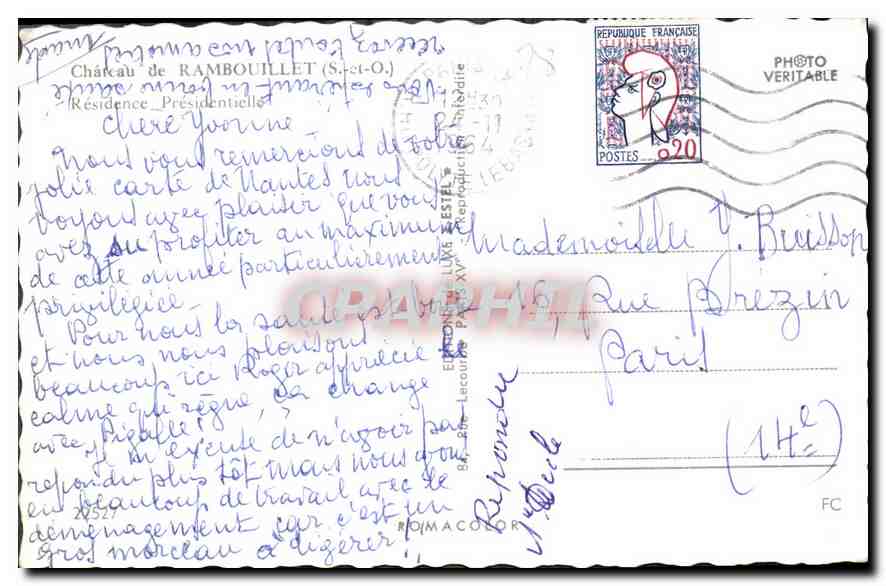 Château de RAMBOUILLET (S.-et-O.)
Résidence Présidentielle
Chère Yvonne
Nous vous remercions de votre
jolie carte de Nantes Nous
voyons avec plaisir que vous
avez su profiter au maximum
de cette année particulièrement
privilégiée
Pour nous la santé est bonne
et nous nous plaisons
beaucoup ici Roger apprécie le
calme qui règne, ça change
avec Pigalle!
J m'excuse de n'avoir pas
répondu plus tôt mais nous avons
eu beaucoup de travail avec le
déménagement car c'est un
gros morceau à digérer!
Vous espérant en bonne santé
recevez toutes nos amitiés
22527
EDITIONS DE LUXE "ESTEL"
84, Rue Lecourbe PARIS XVe Reproduction interdite
ROMACOLOR
REPUBLIQUE FRANÇAISE
POSTES 0,20
PHOTO
VERITABLE
Mademoiselle Y. Buisson
16, Rue Brézin
Paris
(14e)
Répondu
FC
CPAPHIL